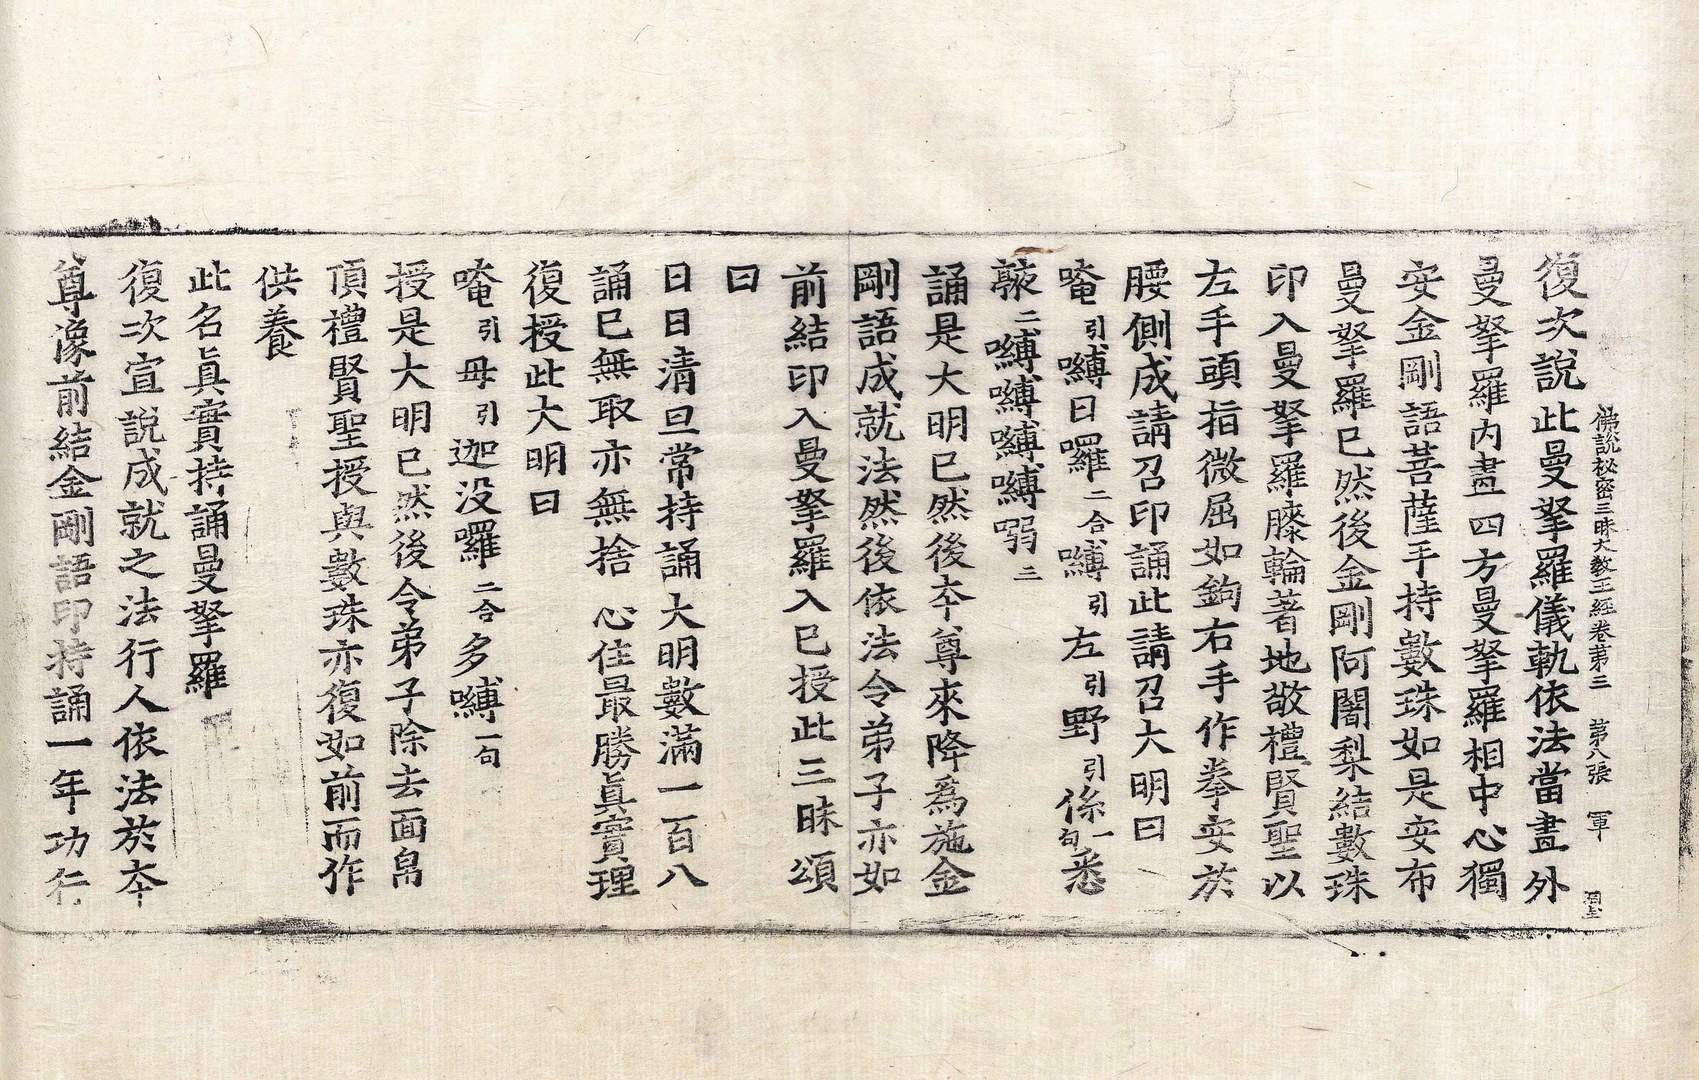 佛說秘密三昧大教王經卷第三　第八張　軍
復次說此曼拏羅儀軌依法當畫外
曼拏羅內畫四方曼拏羅相中心獨
安金剛語菩薩手持數珠如是安布
曼拏羅已然後金剛阿闍梨結數珠
印入曼拏羅膝輪著地敬禮賢聖以
左手頭指微屈如鉤右手作拳安於
腰側成請召印誦此請召大明曰
唵引嚩日囉二合嚩引左引野引係一句悉
𩕳二嚩嚩嚩嚩弱三
誦是大明已然後本尊來降為施金
剛語成就法然後依法令弟子亦如
前結印入曼拏羅入已授此三昧頌
曰
日日清旦常持誦大明數滿一百八
誦已無取亦無捨　心住最勝眞實理
復授此大明曰
唵引毋引迦没囉二合多嚩一句
授是大明已然後令弟子除去面帛
頂禮賢聖授與數珠亦復如前而作
供養
此名眞實持誦曼拏羅
復次宣說成就之法行人依法於本
尊像前結金剛語印持誦一年功行